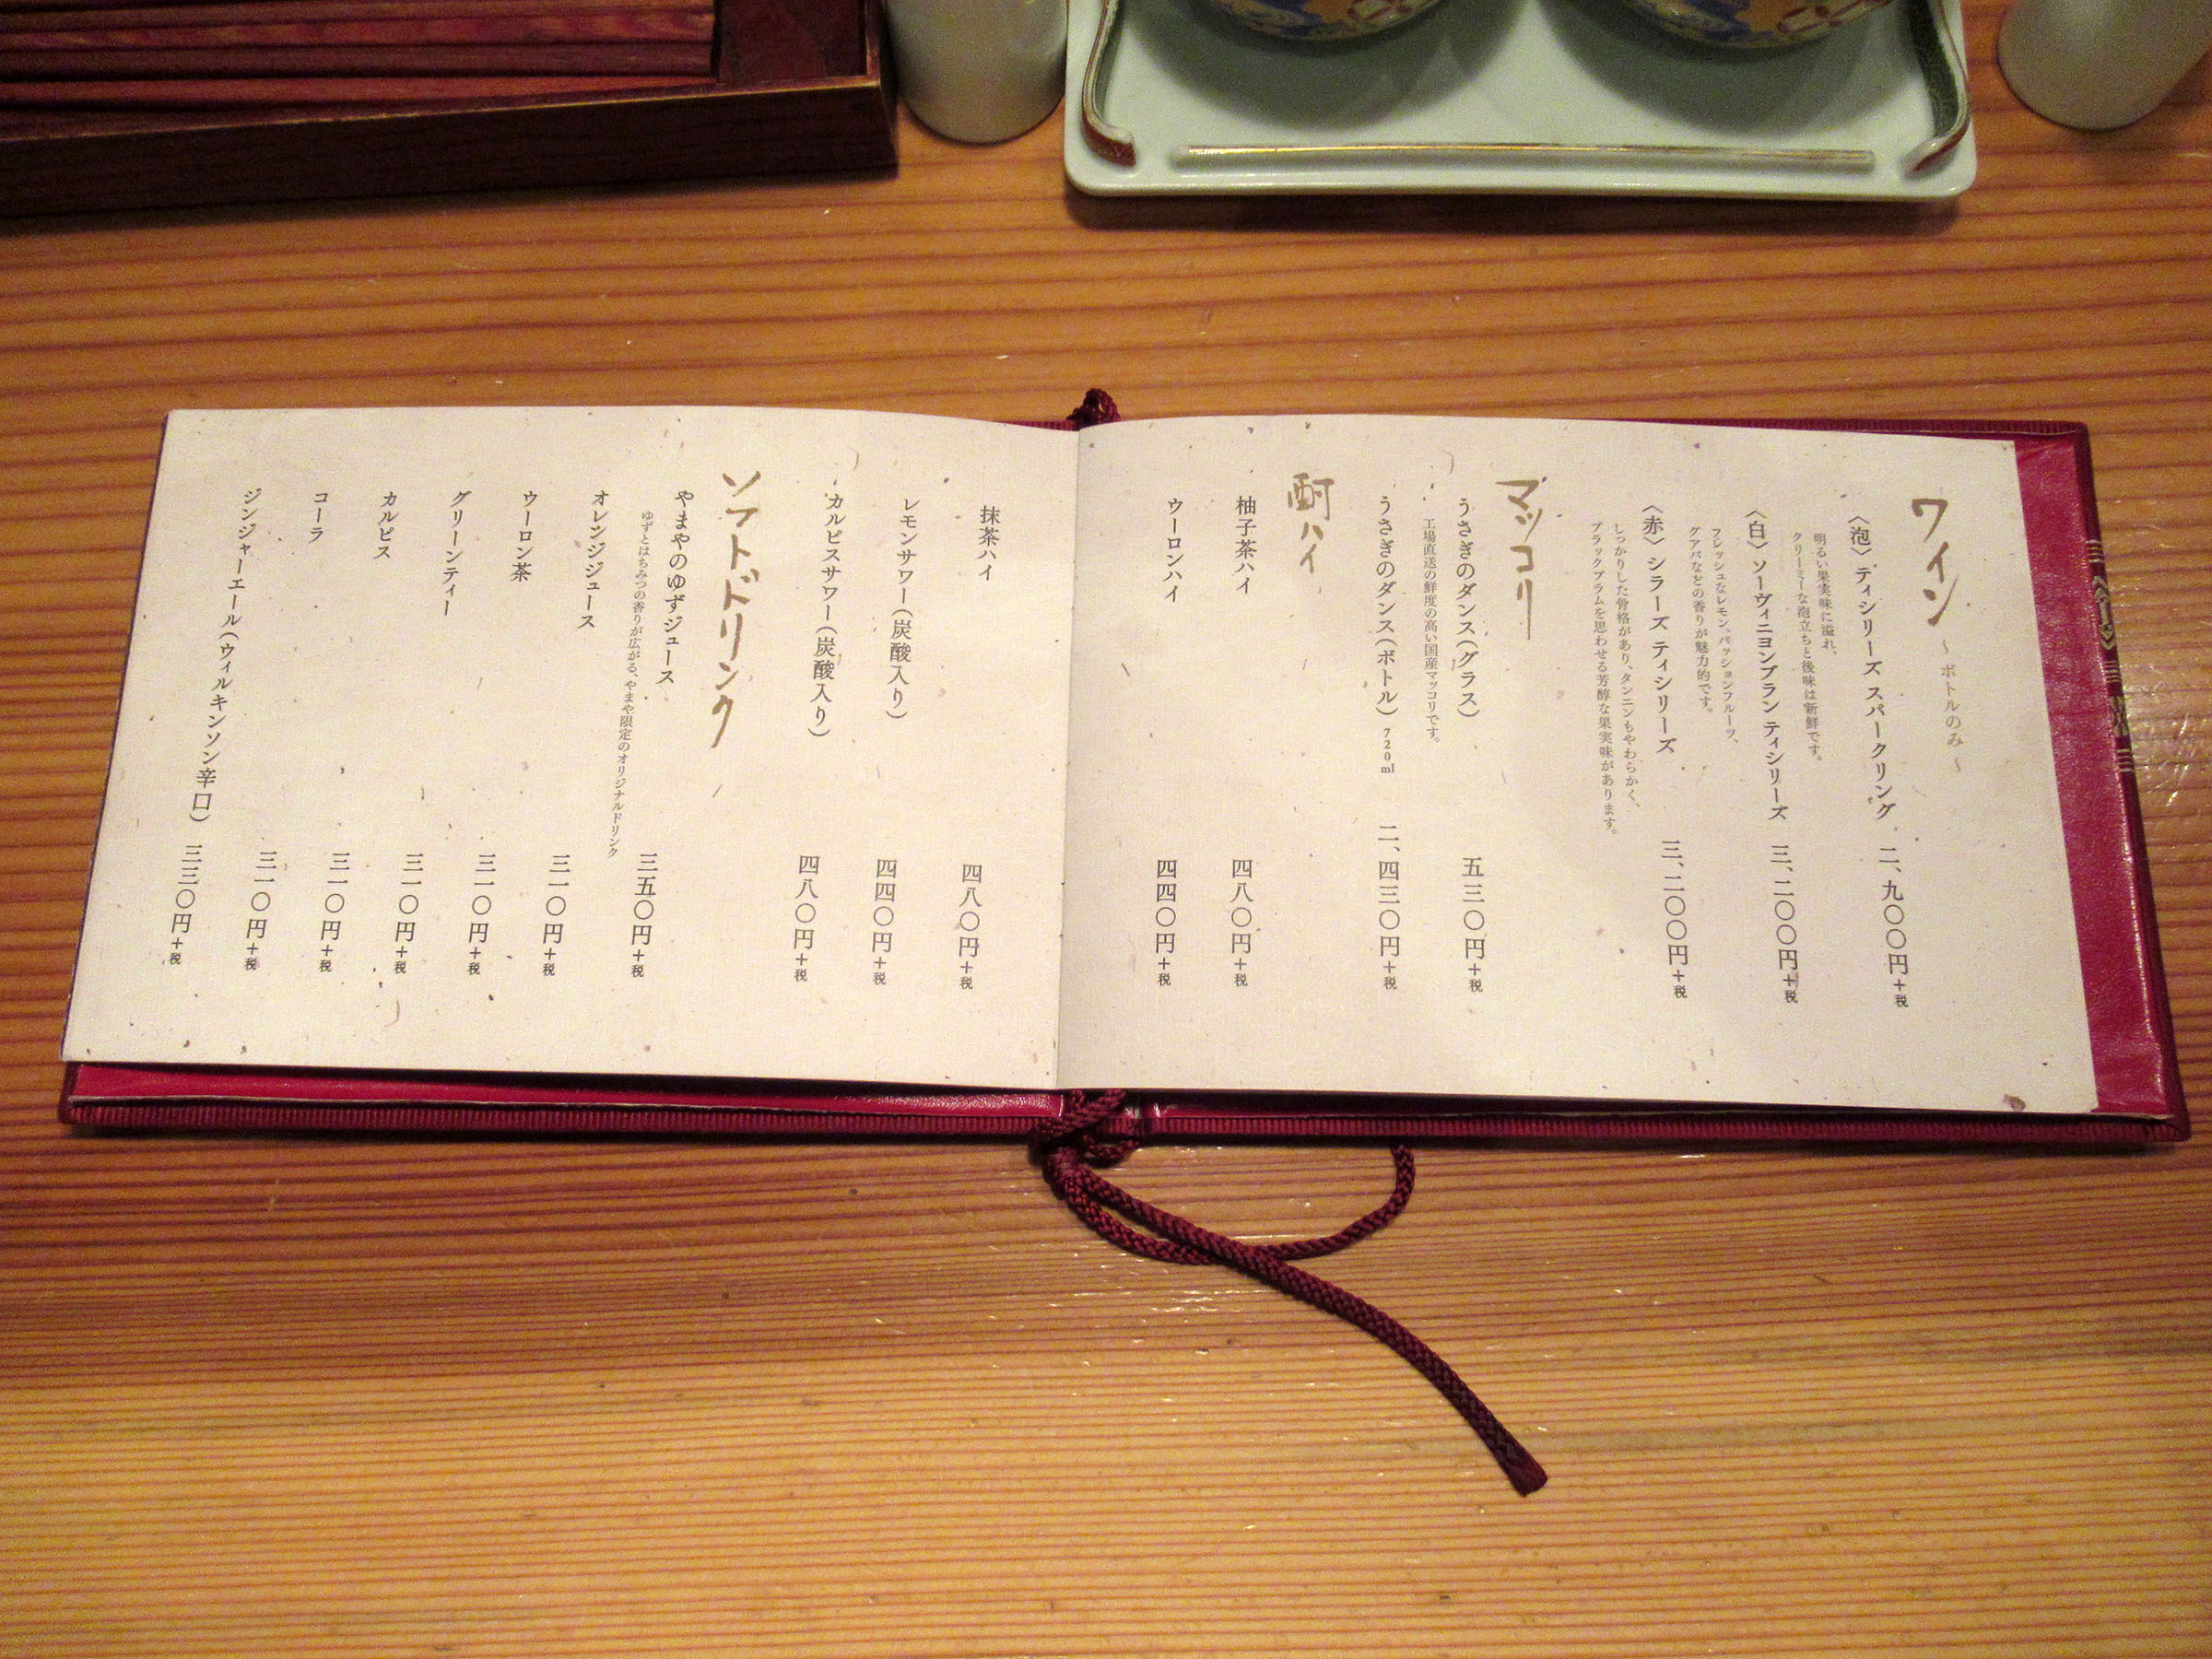 ワイン ～ボトルのみ～
〈泡〉ティシリーズ スパークリング 二、九〇〇円+税
明るい果実味に溢れ、
クリーミーな泡立ちと後味は新鮮です。
〈白〉ソーヴィニヨンブラン ティシリーズ 三、二〇〇円+税
フレッシュなレモン、パッションフルーツ、
グアバなどの香りが魅力的です。
〈赤〉シラーズ ティシリーズ 三、二〇〇円+税
しっかりした骨格があり、タンニンもやわらかく、
ブラックプラムを思わせる芳醇な果実味があります。
マッコリ
うさぎのダンス(グラス) 五三〇円+税
工場直送の鮮度の高い国産マッコリです。
うさぎのダンス(ボトル) 720ml 二、四三〇円+税
酎ハイ
柚子茶ハイ 四八〇円+税
ウーロンハイ 四四〇円+税
抹茶ハイ 四八〇円+税
レモンサワー(炭酸入り) 四四〇円+税
カルピスサワー(炭酸入り) 四八〇円+税
ソフトドリンク
やまやのゆずジュース 三五〇円+税
ゆずとはちみつの香りが広がる、やまや限定のオリジナルドリンク
オレンジジュース 三一〇円+税
ウーロン茶 三一〇円+税
グリーンティー 三一〇円+税
カルピス 三一〇円+税
コーラ 三一〇円+税
ジンジャーエール(ウィルキンソン辛口) 三三〇円+税